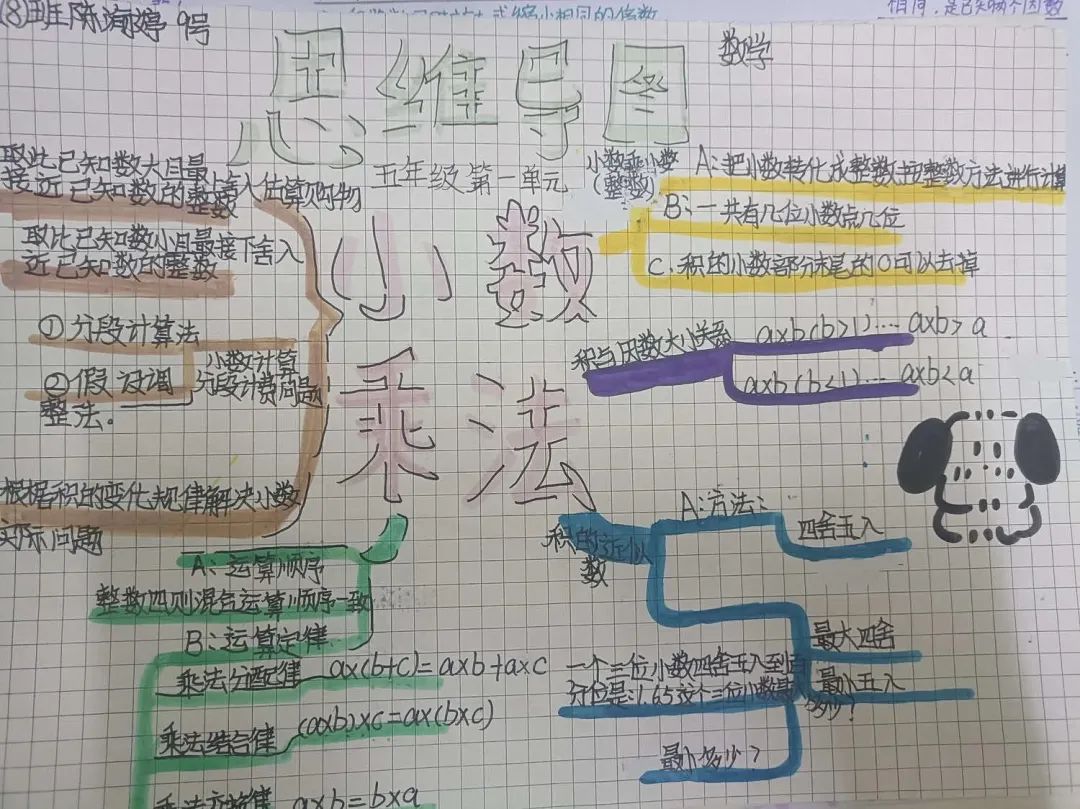 (8)班陈海婷 9号
式缩小相同的倍数
相同,是已知两个因数
数学
思维导图
五年级第一单元
小数乘法
小数乘小数
(整数)
A:把小数转化成整数按整数方法进行计算
B:一共有几位小数点几位
C.积的小数部分末尾的0可以去掉
积与因数大小关系
a×b(b>1)…a×b>a
a×b(b<1)…a×b<a
取比已知数大且最
接近已知数的整数
上舍入估算购物
取比已知数小且最接
近已知数的整数
下舍入
①分段计算法
②假设调
整法.
小数计算
分段计费问题
根据积的变化规律解决小数
实际问题
A:运算顺序
整数四则混合运算顺序一致
B:运算定律
乘法分配律 a×(b+c)=a×b+a×c
乘法结合律 (a×b)×c=a×(b×c)
乘法交换律 a×b=b×a
积的近似
数
A:方法:
四舍五入
最大四舍
最小五入
一个三位小数四舍五入到百
分位是1.65这个三位小数最
多少?
最小多少?